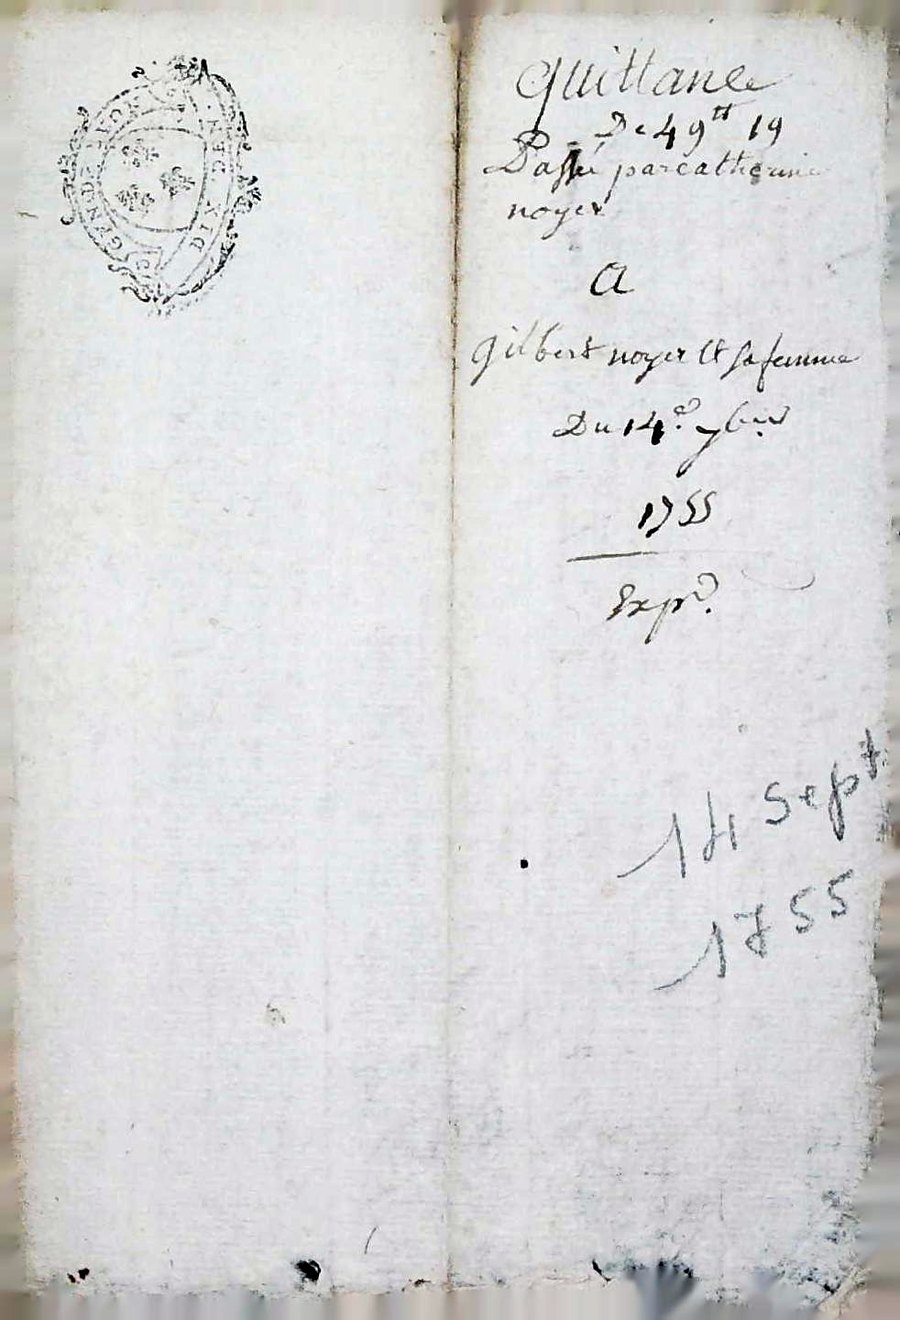 GEN DE LYON
DIX DEN
quittance
De 49tt 19
Passée par catherine
noyer
a
gilbert noyer et sa femme
Du 14e 7bre
1755
Expn.
14 Sept
1755